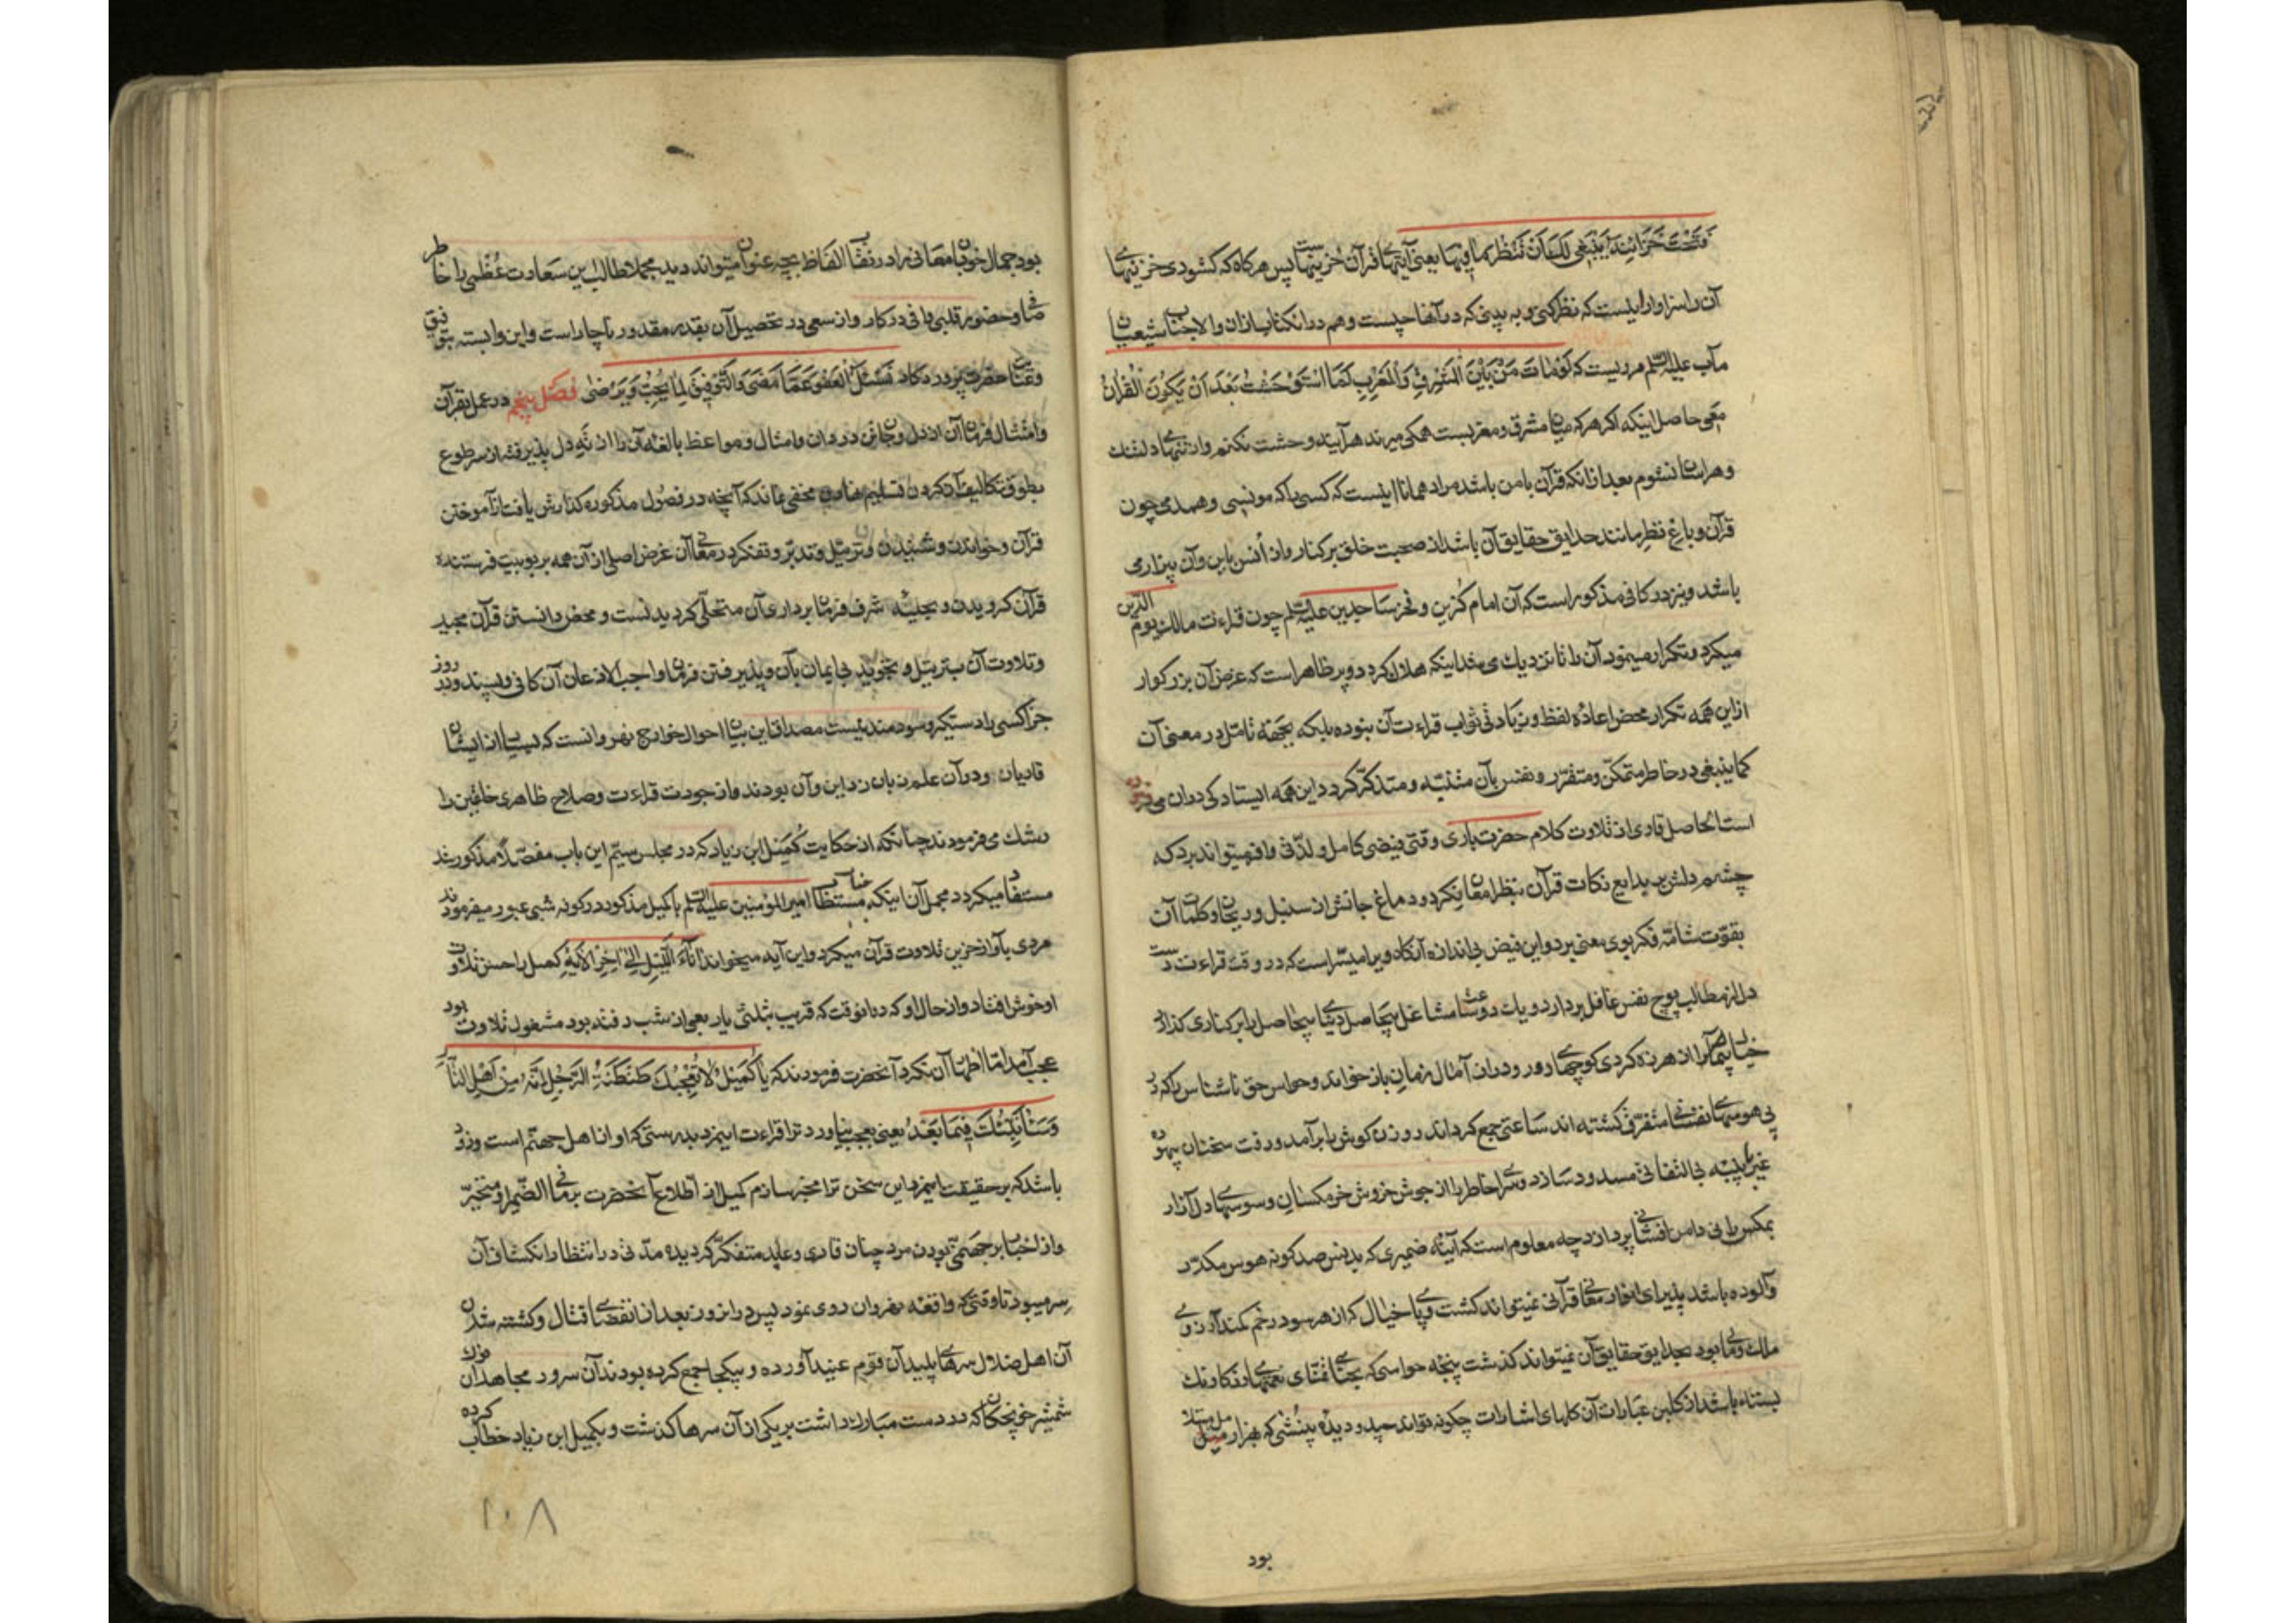 فَتَحْتَ خَزَانِنَه يَنْبَغِي لَكَ اَنْ تَنْظُرَ مَا فِيهَا يعنى آيتهاى قرآن خزينهاست پس هر كاه كه كشودى خزينهاى
آن را سزاوار اينست كه نظر كنى و به بينى كه در آنها چيست و هم در آن كتاب از آن والا جناب شيعيان
مآب عليه السلم مرويست كه لَوْ مَاتَ مَنْ بَيْنَ الْمَشْرِقِ وَالْمَغْرِبِ لَمَا اسْتَوْحَشْتُ بَعْدَ اَنْ يَكُونَ الْقُرْآنُ
مَعِى حاصل اينكه اكر هر كه ميان مشرق و مغربست همكى ميرند هر آينه وحشت نكنم و از تنهائى دلتنك
و هراسان نشوم بعد از آنكه قرآن با من باشد مراد همانا اينست كه كسى را كه مونسى و همدمى چون
قرآن و باغ نظر مانند حدايق حقايق آن باشد از صحبت خلق بر كنار و از اُنس باين و آن بيزارى
باشد و نيز در كافى مذكور است كه آن امام كُزين و فخر ساجدين عليه السلم چون قراءت مالك يوم الدّين
ميكرد و تكرار مينمود آن را تا نزديك مى شد اينكه هلاك كردد و پر ظاهر است كه غرض آن بزركوار
از اين همه تكرار محض اعادهٔ لفظ و زيادتى ثواب قراءت آن نبوده بلكه بجهة تامّل در معنى آن
كما ينبغى در خاطر متمكّن و متقرّر و نفس بآن متنبّه و متذكّر كردد اين همه ايستادكى در آن مى فرموده
است الحاصل قارى از تلاوت كلام حضرت بارى وقتى فيضى كامل و لذّتى وافر ميتواند برد كه
چشم دلش بر بدايع نكات قرآن بنظر امعان نكرد و دماغ جانش از سنبل و ريحان كلمات آن
بقوّت شامّه فكر بوى معنى برد و اين فيض بى اندازه آنكاه ويرا ميسّر است كه در وقت قراءت دست
دل از مطالب پوچ نفس غافل بردارد و يك دو ساعت مشاغل بيحاصل دنياى بيحاصل را بر كنارى كذارد
خيال را از هرزه كردى كوچهاى دور و دراز آمال زمانى باز خواند و حواس حق ناشناس را كه در
پى هوسهاى نفسانى متفرّق كشته اند ساعتى جمع كرداند روزن كوش را بر آمد و رفت سخنان بيهوده
غير به پنبه بى التفاتى مسدود سازد و سراى خاطر را از جوش خروش خرمكسان وسوسهاى دل آزار
بمكس رانى دامن افشانى پردازد چه معلوم است كه آينهٔ ضميرى كه بدنس صد كونه هوس مكدّر
و آلوده باشد پذيراى انوار معانى قرآنى نميتواند كشت و پاى خيال كه از هر سو در خم كمند آرزوى
ملك و مال بود بحدايق حقايق آن نميتواند كذشت پنجهٔ حواسى كه بحناى تمناى نعمتهاى رنكارنك
بسته باشد از كلبن عبارات آن كلهاى اشارات چكونه تواند چيد و ديدهٔ بينشى كه بهزار ميل مبتلا
بود
بود جمال خوبان معانى را در نقاب الفاظ بچه عنوان ميتواند ديد مجملا طالب اين سعادت عُظمى را خاطر
صافى و حضور قلبى وافى در كار و از سعى در تحصيل آن بقدر مقدور ناچار است و اين وابسته بتوفيق
و عنايت حضرت پروردكار نَسْئَلُ الْعَفْوَ عَمَّا مَضَى وَالتَّوْفِيقَ لِمَا يُحِبُّ وَيَرْضَى فصل پنجم در عمل بقرآن
و امتثال فرمان آن از دل و جان در روان و امثال و مواعظ بالغهٔ آن را از ته دل پذيرفتن و سر طوع
بطوق تكاليف آن كردن تسليم نهادن مخفى نماند كه آنچه در فصول مذكوره كذارش يافت از آموختن
قرآن و خواندن و شنيدن و ترتيل و تدبّر و تفكر در معانى آن غرض اصلى از آن همه بربوبيت فرستنده
قرآن كرويدن و بحليهٔ شرف فرمان بردارى آن متحلّى كرديدنست و محض دانستن قرآن مجيد
و تلاوت آن بترتيل و تجويد بى ايمان بآن و پذيرفتن فرمان واجب الاذعان آن كافى و پسنديده روز
جزا كسى را دستكير و سودمند نيست مصداق اين بيان احوال خوارج نهروانست كه بسيارى از ايشان
قاريان و در آن علم زبان زد اين و آن بودند و از جودت قراءت و صلاح ظاهرى خلقين را
رشك مى فرمودند چنانكه از حكايت كُمَيل ابن زياد كه در مجلس سيّم اين باب مفصّلا مذكور شد
مستفاد ميكردد مجمل آن اينكه مستطاب جناب امير المؤمنين عليه السلم با كميل مذكور در كوفه شبى عبور ميفرمودند
مردى بآواز حزين تلاوت قرآن ميكرد و اين آيه ميخواند آنَاءَ اللَّيْلِ اِلىٰ آخِرِ الْآيَةِ كميل را حسن تلاوت
او خوش افتاد و از حال او كه در آنوقت كه قريب بثلثى يا ربعى از شب رفته بود مشغول تلاوت بود
عجب آمد امّا اظهار آن نكرد آنحضرت فرمودند كه يا كُمَيْلُ لَا تُعْجِبْكَ طَنْطَنَةُ الرَّجُلِ اِنَّهُ مِنْ اَهْلِ النَّارِ
وَسَأُنَبِّئُكَ فِيمَا بَعْدُ يعنى بعجب نياورد ترا قراءت اين مرد بدرستى كه او از اهل جهنّم است و زود
باشد كه بر حقيقت اين مرد اين سخن ترا مخبر سازم كميل از اطّلاع آنحضرت بر ما فى الضّمير او متحيّر
و از اخبار بر جهنّمى بودن مرد چنان قارى و عابد متفكّر كرديده مدّتى در انتظار انكشاف آن
سر ميبود تا وقتى كه واقعهٔ نهروان روى نمود پس در آن روز بعد از انقضاى قتال و كشته شدن
آن اهل ضلال سرهاى پليد آن قوم عنيد آورده و بيكجا جمع كرده بودند آن سرور مجاهدان
شمشير خونچكان كه در دست مبارك داشت بر يكى از آن سرها كذاشت و بكميل ابن زياد خطاب كرده
١٠٨